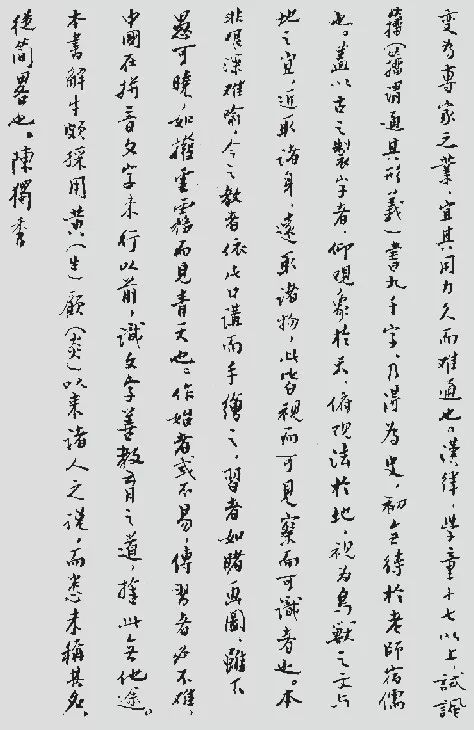 變為專家之業,宜其用力久而難通也。漢律,學童十七以上,試諷
籀(籀謂通其形義)書九千字,乃得為史,初無待於老師宿儒
也。蓋以古之製字者,仰觀象於天,俯观法於地,視鳥獸之文与
地之宜,近取諸身,遠取諸物,此皆視而可見察而可識者也。本
非深難喻,今之教者依此口講而手繪之,習者如睹画圖,雖下
愚可曉,如撥雲霧而見青天也。作始者或不易,傳習者必不難,
中國在拼音文字未行以前,識文字善教育之道,捨此無他途。
本書解字頗採用黄(生)顧(炎)以来諸人之说,而悉未稱其名,
從简畧也。陳獨秀